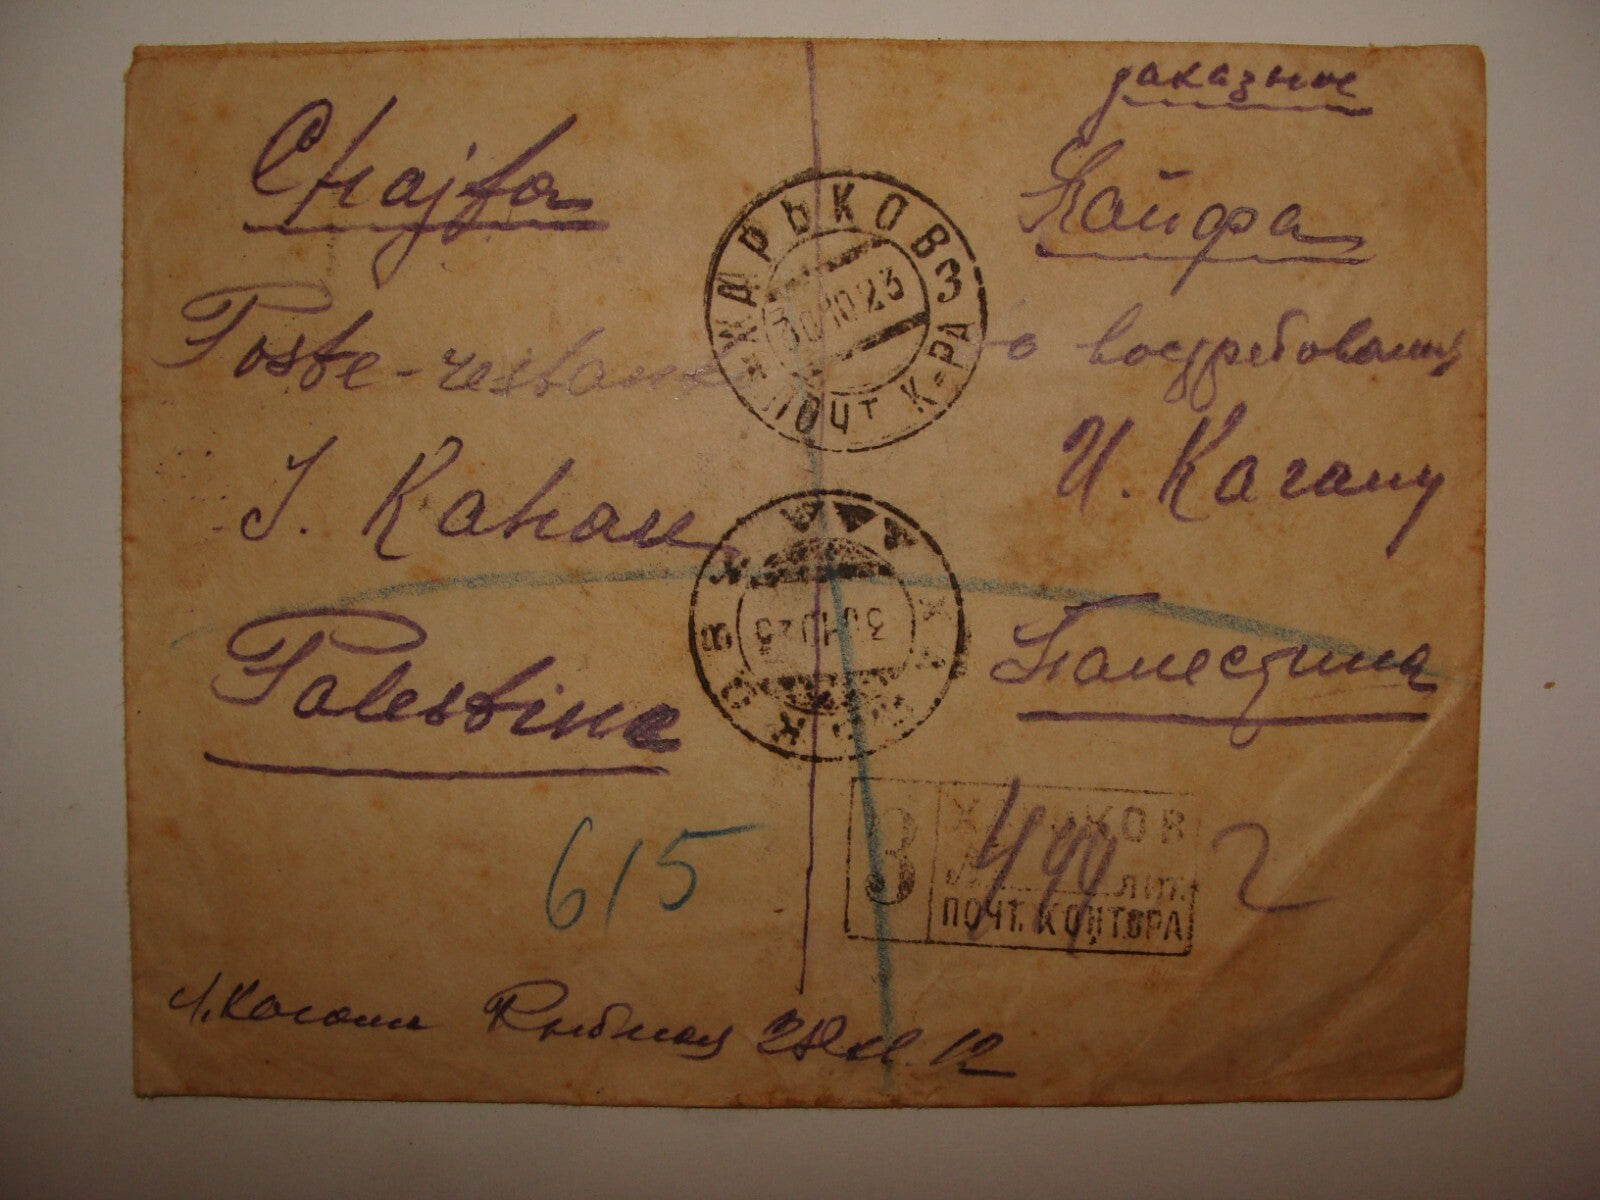 заказное
Chajfa
Хайфа
Poste-restante
до востребования
I. Kahan
И. Кагану
Palestine
Палестина
ХАРЬКОВ 3
30 10 23
ПОЧТ К-РА
ХАРЬКОВ
30 10 23
3 ХАРЬКОВ
лит.
ПОЧТ. КОНТОРА
615
Каган Рыбная 28 кв. 12